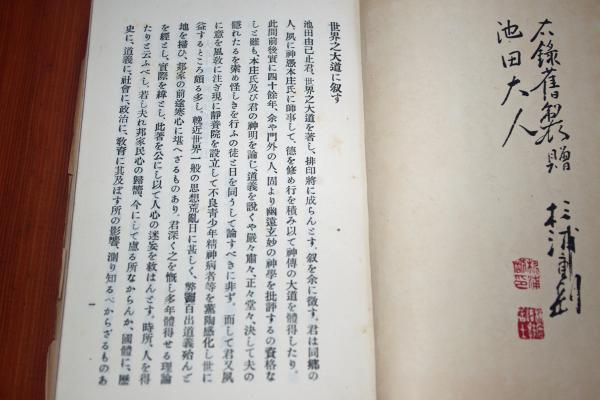 右錄舊製贈
池田大人
杉浦重剛
世界之大道に叙す
池田由己止君、世界之大道を著し、排印將に成らんとす。叙を余に徴す。君は同鄕の
人、夙に神憑本庄氏に師事して、德を修め行を積み以て神傳の大道を體得したり。
此間前後實に四十餘年、余や門外の人、固より幽遠玄妙の神學を批評するの資格な
しと雖も、本庄氏及び君の神明を論じ、道義を說くや嚴々肅々、正々堂々、決して夫の
隱れたるを索め怪しきを行ふの徒と日を同うして論すべきに非ず。而して君又夙
に意を風敎に注ぎ現に靜養院を設立して不良靑少年精神病者等を薰陶感化し世に
益するところ頗る多し。晩近世界一般の思想荒亂日に甚しく、弊竇百出道義殆んど
地を掃ひ、邦家の前途寒心に堪へざるものあり。君深く之を慨し多年體得せる理論
を經とし、實際を緯とし、此著を公にし以て人心の迷妄を救はんとす。時所、人を得
たりと云ふべし。若し夫れ邦家民心の歸嚮、今にして慮る所なからんか、國體に、歷
史に、道義に、社會に、政治に、敎育に其及ぼす所の影響、測り知るべからざるものあ
一